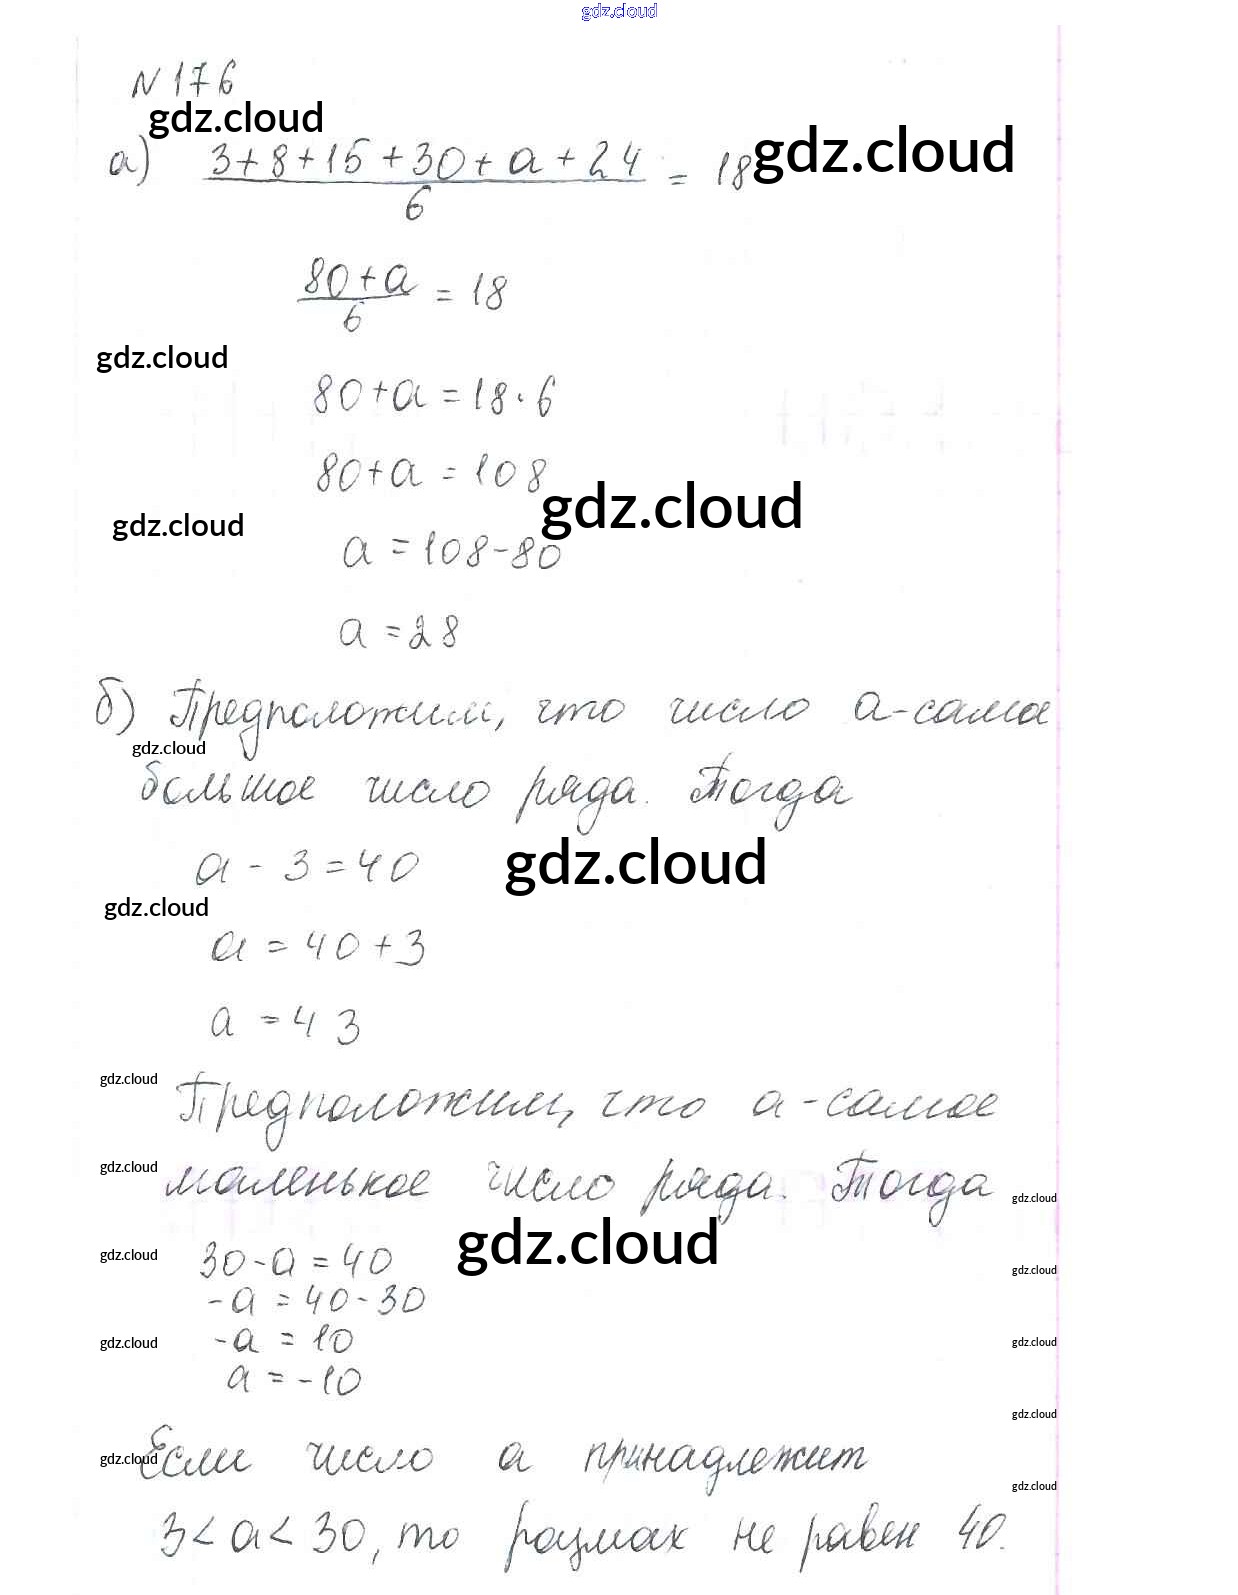 gdz.cloud
N 176
gdz.cloud
а) 3+8+15+30+а+24 = 18 gdz.cloud
6
80+а = 18
6
gdz.cloud
80+а=18·6
80+а = 108
gdz.cloud gdz.cloud
а =108-80
а =28
б) Предположим, что число а-самое
gdz.cloud
большое число ряда. Тогда
а - 3=40 gdz.cloud
gdz.cloud
а = 40+3
а =43
gdz.cloud
Предположим, что а-самое
gdz.cloud
маленькое число ряда. Тогда
gdz.cloud
gdz.cloud
30-а=40 gdz.cloud
gdz.cloud
-а = 40-30
-а = 10
gdz.cloud gdz.cloud
а =-10
gdz.cloud
Если число а принадлежит
gdz.cloud
gdz.cloud
3<а<30, то размах не равен 40.